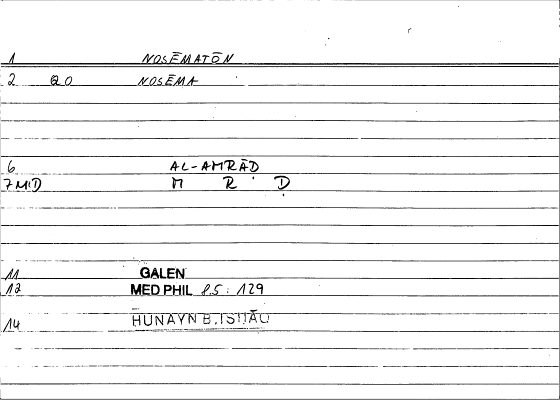 1 NOSĒMATŌN
2 QO NOSĒMA
6 AL-AMRĀḌ
7 MD M R Ḍ
11 GALEN
12 MED PHIL 8.5: 129
14 ḤUNAYN B. ISḤĀQ